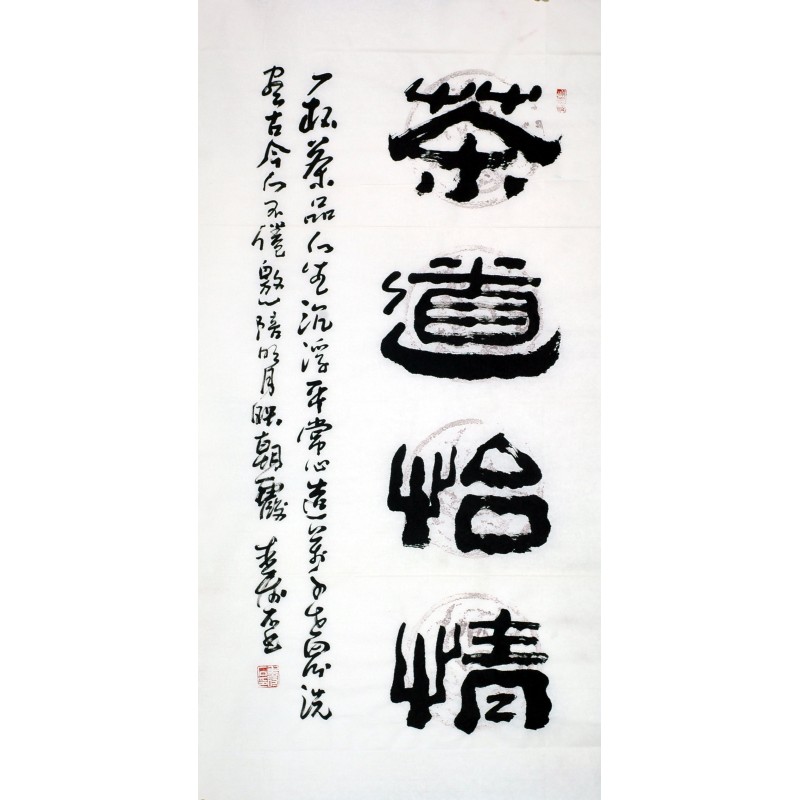 茶道怡情
一杯茶品人生沉浮平常心造万千世界洗
尽古今人不倦邀陪明月映朝霞